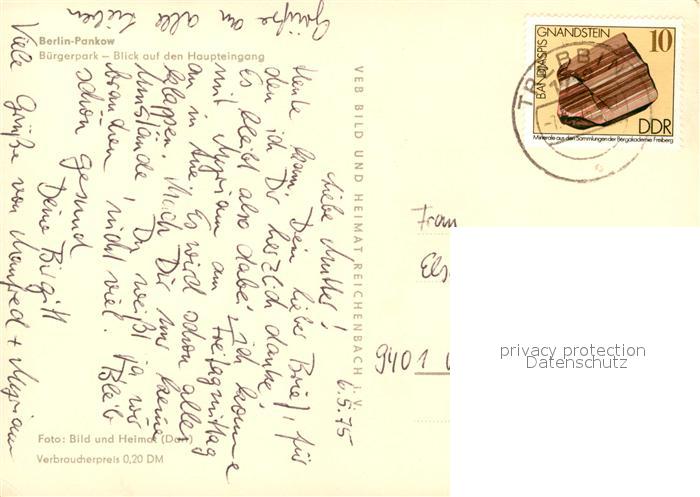 Berlin-Pankow
Bürgerpark – Blick auf den Haupteingang
VEB BILD UND HEIMAT REICHENBACH i. V.
6.5.75
Liebe Mutter!
Heute kam Dein lieber Brief, für
den ich Dir herzlich danke.
Es bleibt also dabei, ich komme
mit Myriam am Freitagmittag
an in Aue. Es wird schon alles
klappen. Mach Dir nur keine
Umstände. Du weißt ja, wir
brauchen nicht viel. Bleib
schön gesund
Deine Birgitt
Viele Grüße von Manfred + Myriam
Grüße an alle Lieben
Foto: Bild und Heimat
Verbraucherpreis 0,20 DM
BANDJASPIS GNANDSTEIN
10
DDR
Minerale aus den Sammlungen der Bergakademie Freiberg
TREBBIN
Frau
Els
9401
privacy protection
Datenschutz